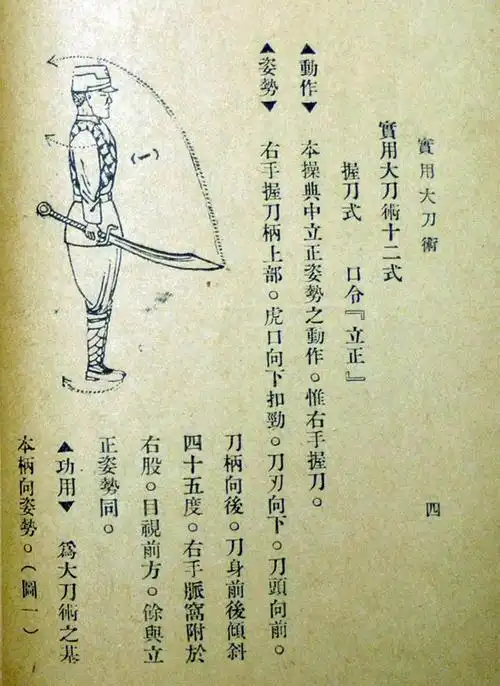 實用大刀術
四
實用大刀術十二式
握刀式 口令『立正』
▲動作▼ 本操典中立正姿勢之動作。惟右手握刀。
▲姿勢▼ 右手握刀柄上部。虎口向下扣勁。刀刃向下。刀頭向前。
刀柄向後。刀身前後傾斜
四十五度。右手脈窩附於
右股。目視前方。餘與立
正姿勢同。
▲功用▼ 爲大刀術之基
本柄向姿勢。(圖一)
(一)